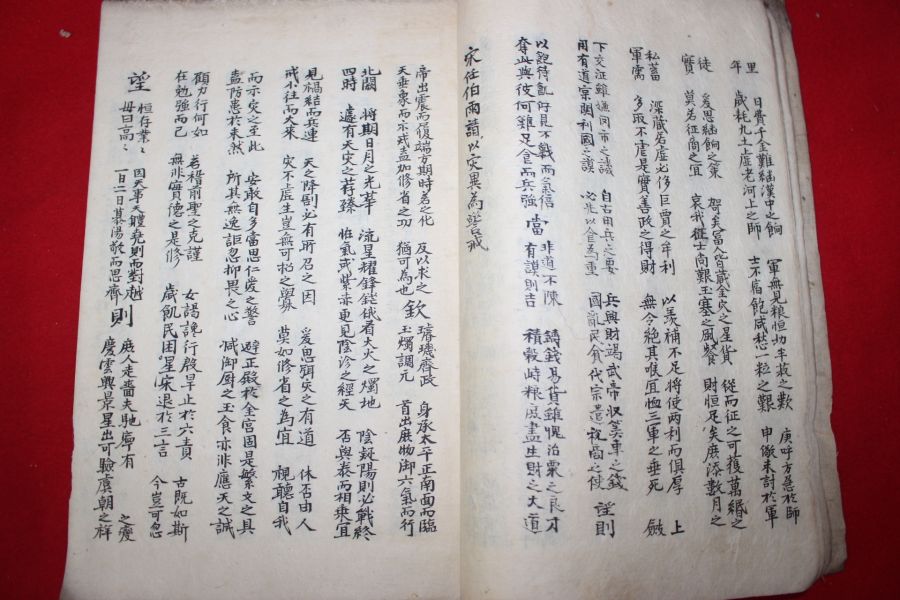 日費千金難繼漢中之餉 軍無見粮恒切半菽之歎 庚呼方急於師
里年 歲耗九土虛老河上之師 士不宿飽咸愁一粒之艱 申儆未討於軍
爰思繼餉之策 富人皆歲金 之星貨 從而征之可獲萬緡之
徒實 莫若征商之宜 哀我征士尚艱玉塞之風餐 財恒足矣庶添數月之
私蓄 深藏若虛必侈巨賈之年利 以羨補不足將使兩利而俱厚 上
軍需 多取不虐是實善政之得財 無令絕其喉宜恤三軍之垂死 斂
下交征雖嫌同市之譏 自古田兵之要 兵興財竭武帝収筭車之錢
用有道宗開利國之謨 必先以食為重 國亂民貧代宗遣祝富之使 望則
以飽待飢何見不戰而氣倍 非道不陳 鑄錢易貨雖愧治粟之良才
奪此與彼何難足食而兵強 當 有謨則吉 積穀峙粮思盡生財之大道
宋任伯雨請以灾異為警戒
帝出震而履端方期時若之化 反以求之 璿璣齊政 身承太平正南面而臨
天垂象而示戒盍加修省之功 猶可為也 欽 玉燭調元 首出庶物御六氣而行
北闕 將期日月之光華 流星耀鋒錢俄看大火之燭地 陰凝陽則必戰終
四時 遽有天灾之荐臻 怪氣或紫赤更見陰沴之經天 否與泰而相乗宜
見禍結而兵連 天之降割必有所召之因 爰思弭灾之有道 休否由人
戒小往而大來 灾不虛生豈無可招之釁 莫如修省之為宜 視聽自我
而示灾之至此 安敢自多當思仁愛之警 避正殿於金宮固是繁文之具
盍防患於未然 所其無逸詎忽抑畏之心 减御厨之玉食亦非應天之誠
顧力行何如 若稽前聖之克謹 女謁讒行殷旱止於六責 古既如斯
在勉強而已 無非實德之是修 歲飢民困星宋退於三言 今豈可忽
望 恒存業〻 因天事天體堯則而對越 庶人走嗇夫馳寧有 之變
毋曰高〻 一日二日慕湯敬而思齊 則 慶雲興景星出可驗虞朝之祥